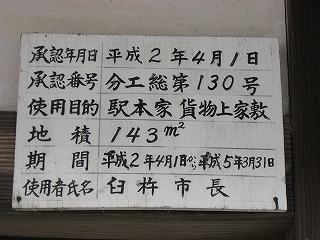 承認年月日 平成2年4月1日
承認番号 分工総第130号
使用目的 駅本家貨物上家敷
地積 143m²
期間 平成2年4月1日から平成5年3月31日
使用者氏名 臼杵市長